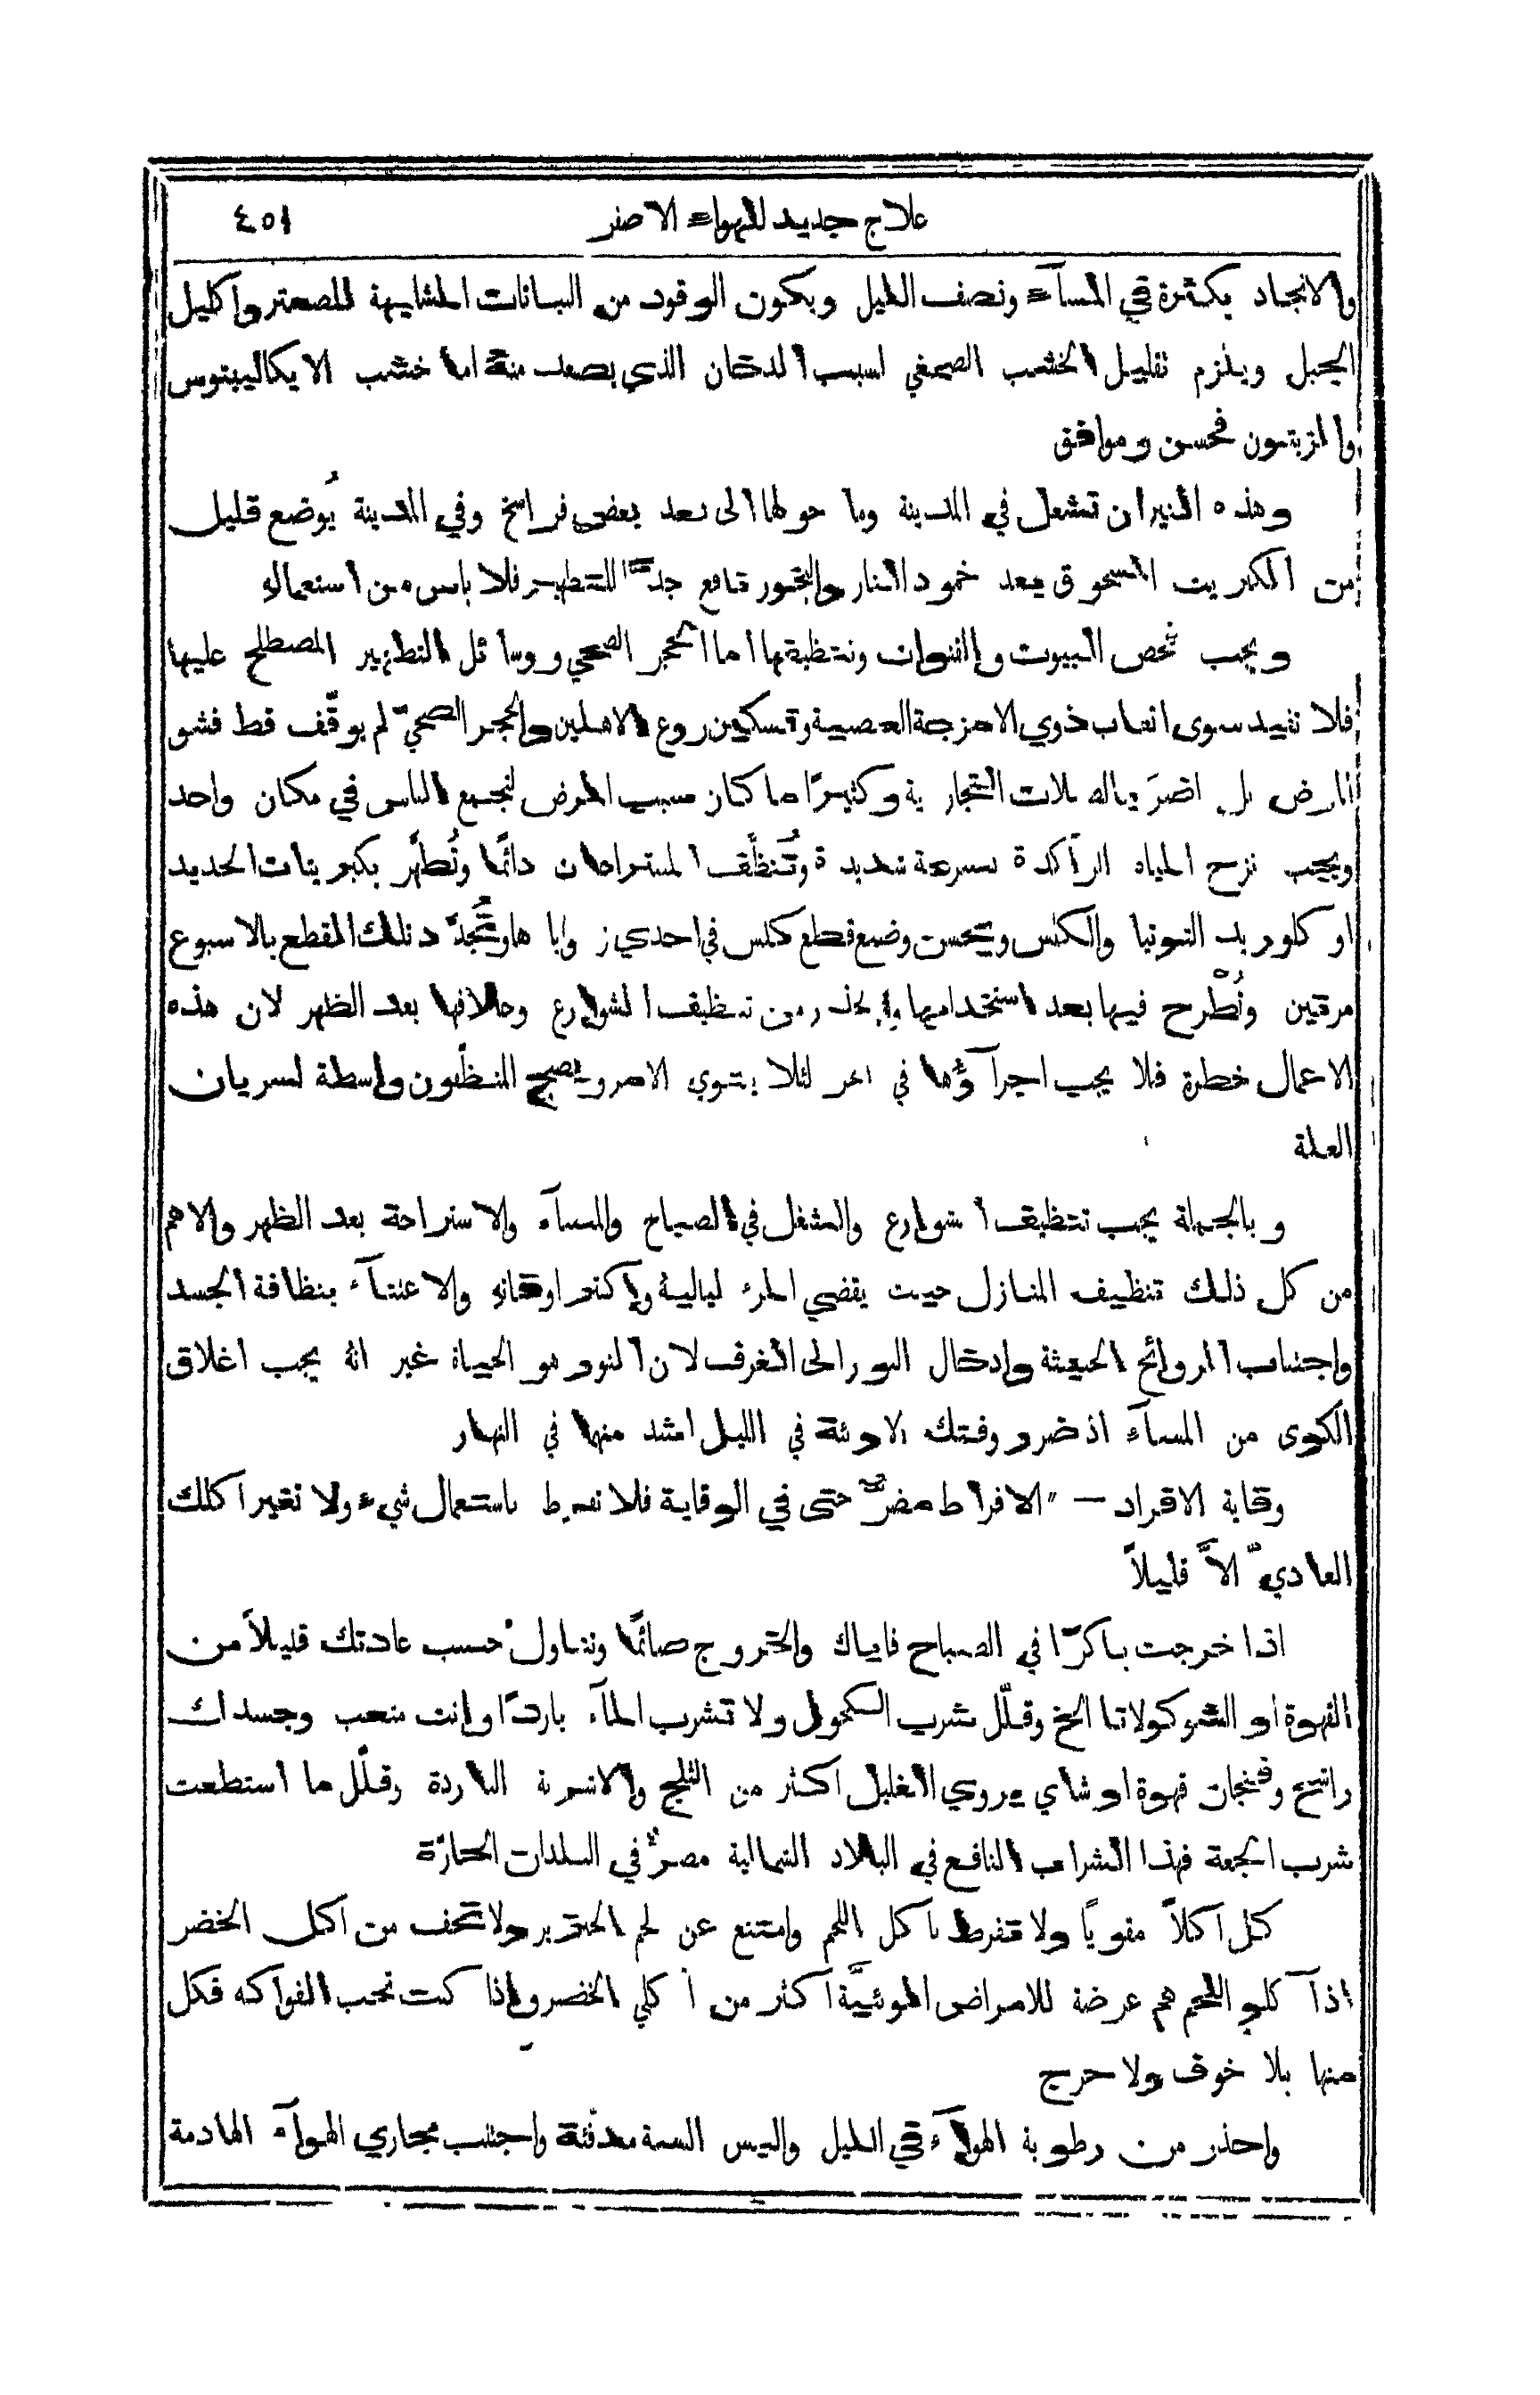 علاج جديد للهواء الاصفر ٤٥١
والانجاد بكثرة في المسآء ونصف الليل ويكون الوقود من النباتات المشابهة للصعتر واكليل
الجبل ويلزم تقليل الخشب الصمغي لسبب الدخان الذي يصعد منهُ اما خشب الايكاليبتوس
والزيتون فحسن وموافق
وهذه النيران تشعل في المدينة وما حولها الى بعد بعض فراسخ وفي المدينة يُوضع قليل
من الكبريت المسحوق بعد خمود النار والبخور نافع جدًّا للتطهير فلا باس من استعمالهِ
ويجب فحص البيوت والقنوات وتنظيفها اما الحجر الصحي ووسائل التطهير المصطلح عليها
فلا تفيد سوى اتعاب ذوي الامزجة العصبية وتسكين روع الاهلين والحجر الصحيّ لم يوقّف قط فشو
المرض بل اضرَّ بالصلات التجارية وكثيرًا ما كان سبب المرض لتجمع الناس في مكان واحد
ويجب نزح المياه الراكدة بسرعة شديدة وتُنظَّف المستراحات دائمًا وتُطهَّر بكبريتات الحديد
او كلوريد التوتيا والكلس ويحسن وضع قطع كلس في احدى زواياها وتُجدّد تلك القطع بالاسبوع
مرتين وتُطرح فيها بعد استخدامها وليحذر من تنظيف الشوارع وخلافها بعد الظهر لان هذه
الاعمال خطرة فلا يجب اجرآؤها في الحر لئلا يقوى الامر ويصبح المنظّفون واسطة لسريان
العلة
وبالجملة يجب تنظيف الشوارع والشغل في الصباح والمسآء والاستراحة بعد الظهر والاهم
من كل ذلك تنظيف المنازل حيث يقضي المرء لياليهُ واكثر اوقاتهِ والاعتنآء بنظافة الجسد
واجتناب الروائح الخبيثة وادخال النور الى الغرف لان النور هو الحياة غير انهُ يجب اغلاق
الكوى من المسآء اذ ضرر وفتك الاوبئة في الليل اشد منها في النهار
وقاية الافراد — الافراط مضرٌّ حتى في الوقاية فلا تفرط باستعمال شيء ولا تغير اكلك
العاديّ الاَّ قليلاً
اذا خرجت باكرًا في الصباح فاياك والخروج صائمًا وتناول حسب عادتك قليلاً من
القهوة او الشوكولاتا الخ وقلّل شرب الكحول ولا تشرب المآء باردًا وانت متعب وجسدك
راشح وفنجان قهوة او شاي يروي الغليل اكثر من الثلج والاشربة الباردة وقلّل ما استطعت
شرب الجعة فهذا الشراب النافع في البلاد الشمالية مضرٌّ في البلدان الحارّة
كل اكلاً مقويًا ولا تفرط باكل اللحم وامتنع عن لحم الخنزير ولا تخف من اكل الخضر
اذ آكلو اللحم هم عرضة للامراض الوبئيَّة اكثر من آكلي الخضر واذا كنت تحب الفواكه فكل
منها بلا خوف ولا حرج
واحذر من رطوبة الهوآء في الليل والبس البسة مدفئة واجتنب مجاري الهوآء الهادمة